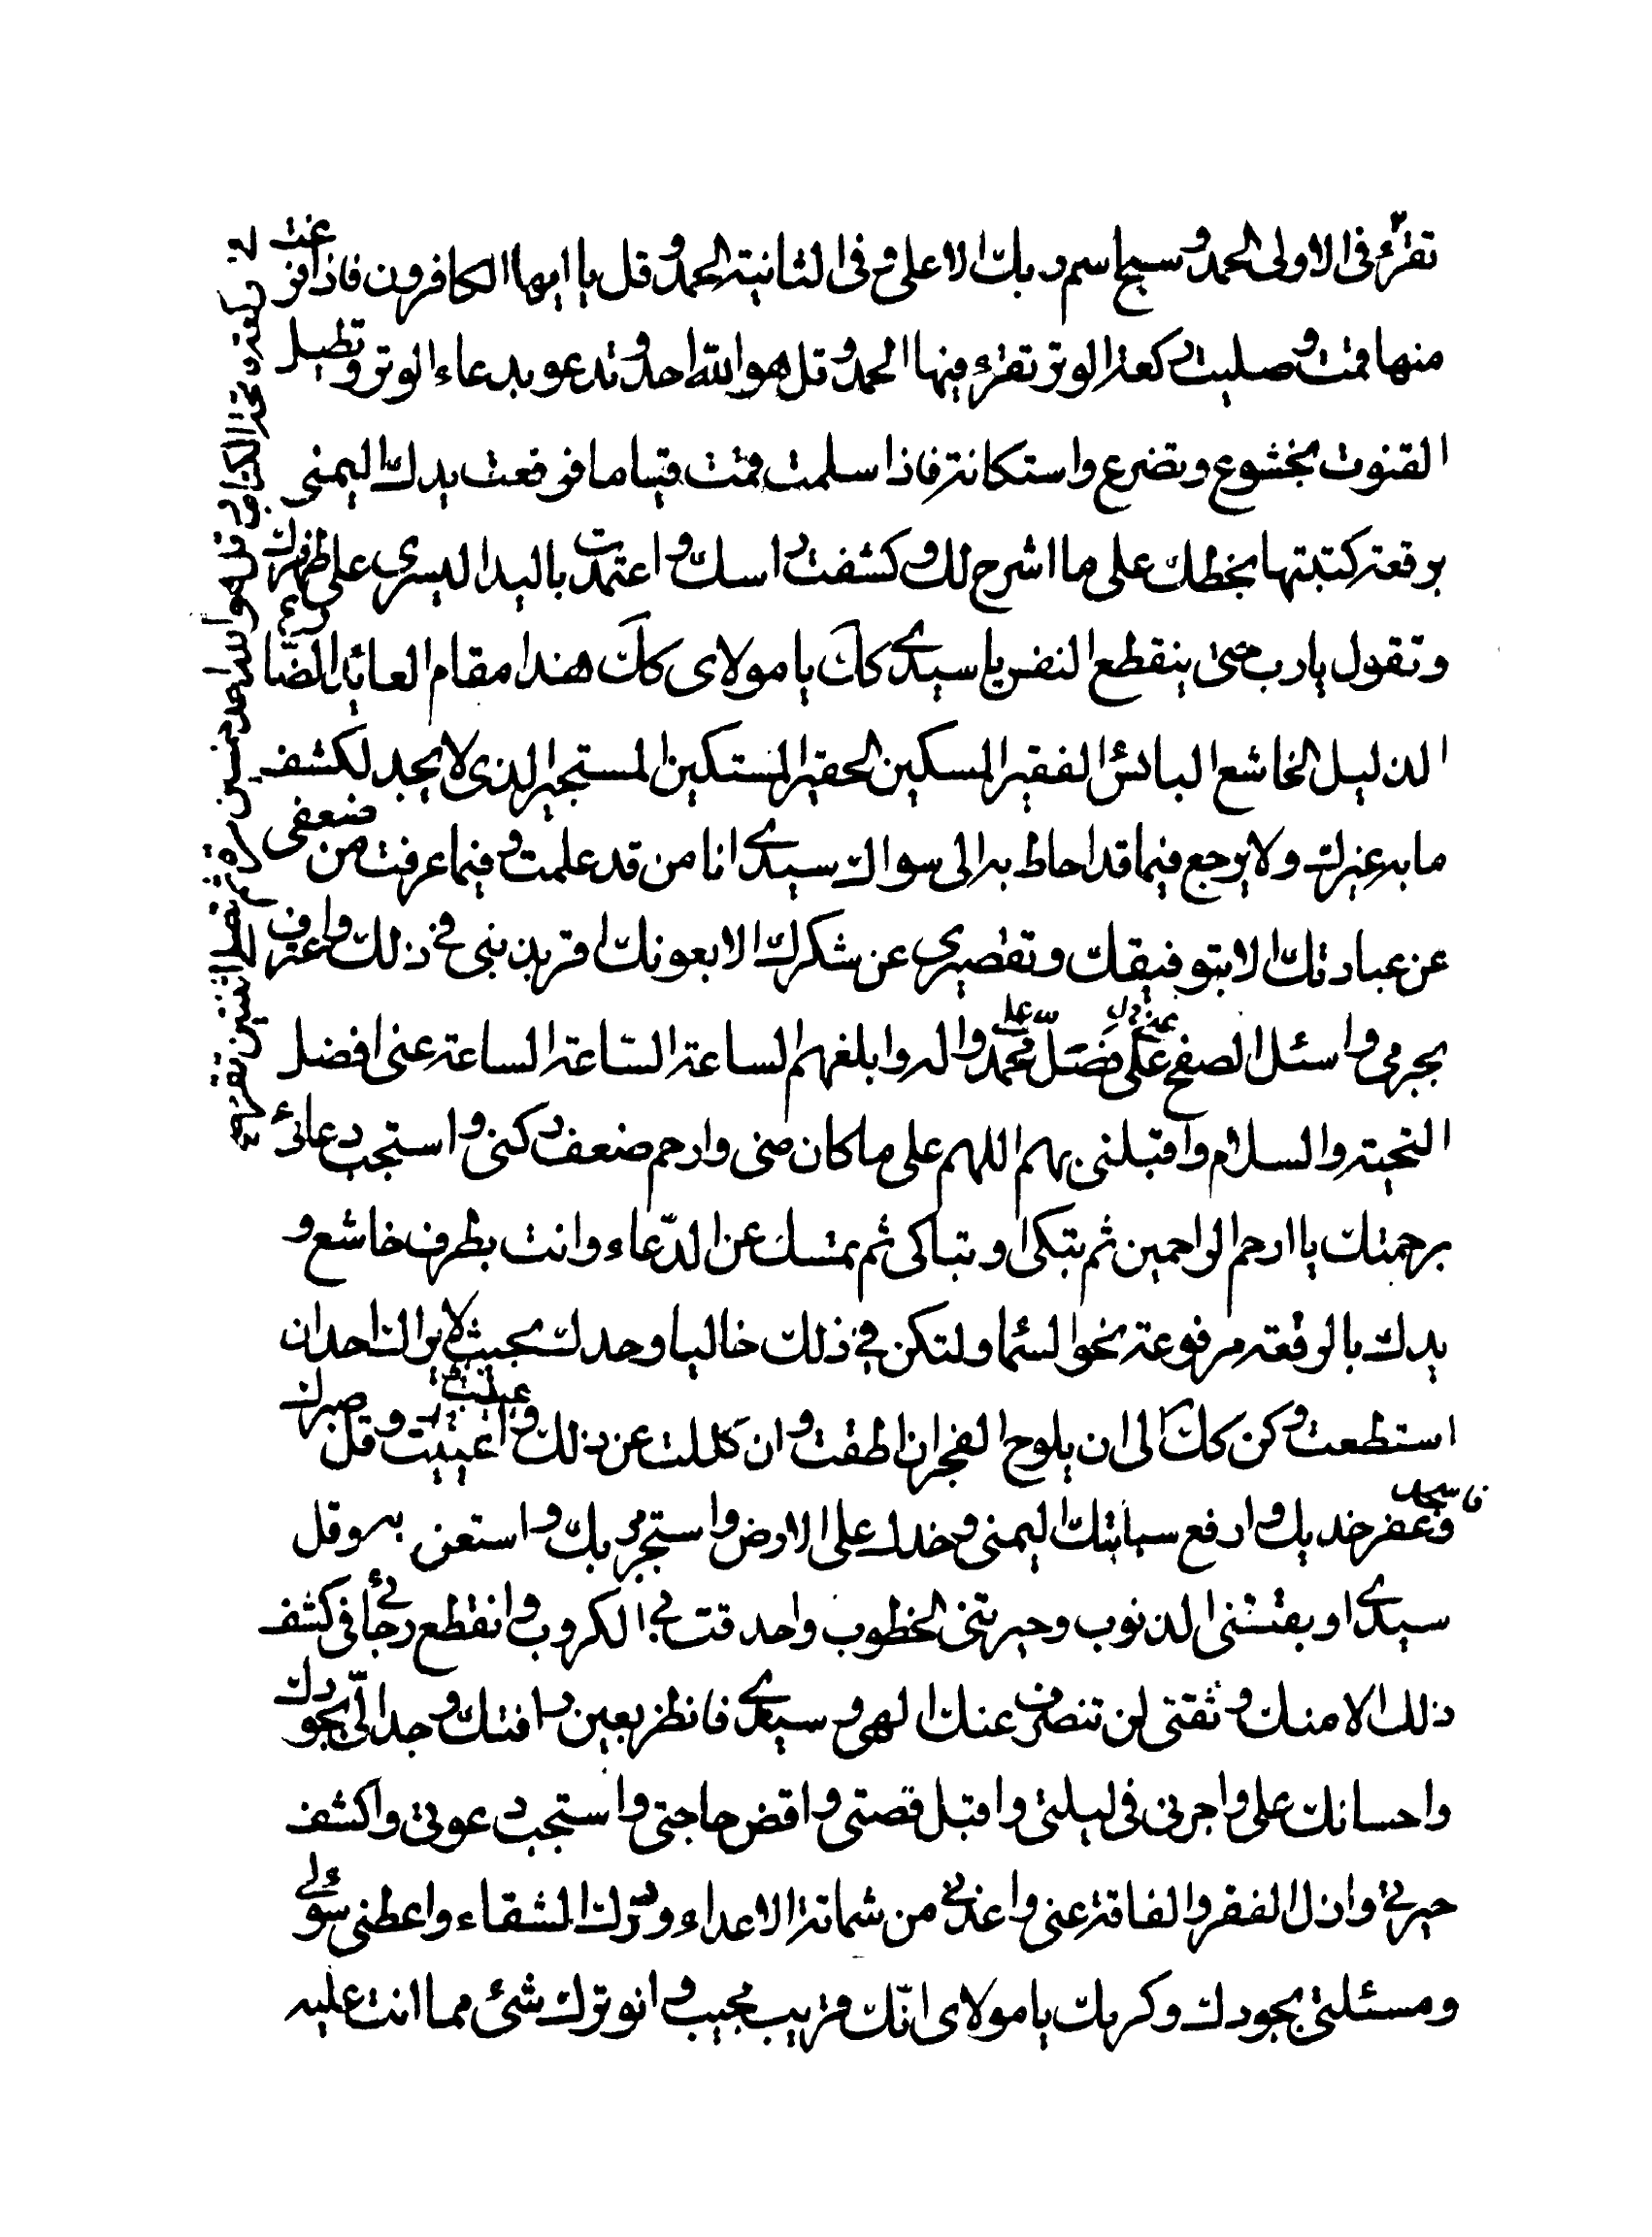 تقرء في الاولى الحمد و سبح اسم ربك الاعلى و في الثانية الحمد و قل يا ايها الكافرون فاذا فرغت
منها قمت و صليت ركعة الوتر تقرء فيها الحمد و قل هو الله احد و تدعو بدعاء الوتر و تطيل
القنوت بخشوع و تضرع و استكانة فاذا سلمت قمت قياما فرفعت يدك اليمنى
برقعة كتبتها بخطك على ما اشرح لك و كشفت راسك و اعتمدت باليد اليسرى على ظهرك
و تقول يا رب حتى ينقطع النفس يا سيدي كك يا مولاى كك هذا مقام العائذ الضارع
الذليل الخاشع البائس الفقير المسكين الحقير المستكين المستجير الذى لا يجد لكشف
ما به غيرك و لا يرجع فيما قد احاط به الى سواك سيدي انا من قد علمت و فيما عرفت من ضعفى
عن عبادتك الا بتوفيقك و تقصيرى عن شكرك الا بعونك اقر بذنبى في ذلك و اعترف
بجرمى و اسئل الصفح عنى فصل على محمد و اله و ابلغهم الساعة الساعة الساعة عنى افضل
التحية و السلام و اقبلنى بهم اللهم على ما كان منى و ارحم ضعف ركنى و استجب دعائى
برحمتك يا ارحم الراحمين ثم تبكى او تتباكى ثم تمسك عن الدعاء و انت بطرف خاشع و
يدك بالرقعة مرفوعة نحو السما و لتكن في ذلك خاليا وحدك بحيث لا يراك احد ان
استطعت و كن كك الى ان يلوح الفجر ان اطقت و ان كللت عن ذلك و اعييت و قل صبرك
فاسجد و عفر خديك و ارفع سبابتك اليمنى و خدك على الارض و استجر بربك و استعن به و قل
سيدي اوبقتنى الذنوب و حيرتنى الخطوب و احدقت بي الكروب و انقطع رجائي في كشف
ذلك الا منك و ثقتى لن تنصرف عنك الهى و سيدي فانظر بعين رافتك و جد الي بجودك
و احسانك على و اجرنى في ليلتى و اقبل قصتى و اقض حاجتى و استجب دعوتى و اكشف
حيرتى و ازل الفقر و الفاقة عنى و اعذني من شماتة الاعداء و درك الشقاء و اعطنى سؤلي
و مسئلتى بجودك و كرمك يا مولاى انك قريب مجيب و انو ترك شئ مما انت عليه
فاتحة الكتاب و قل هو الله احد خمسين مرة ثم تصلي اثنتين تقرء